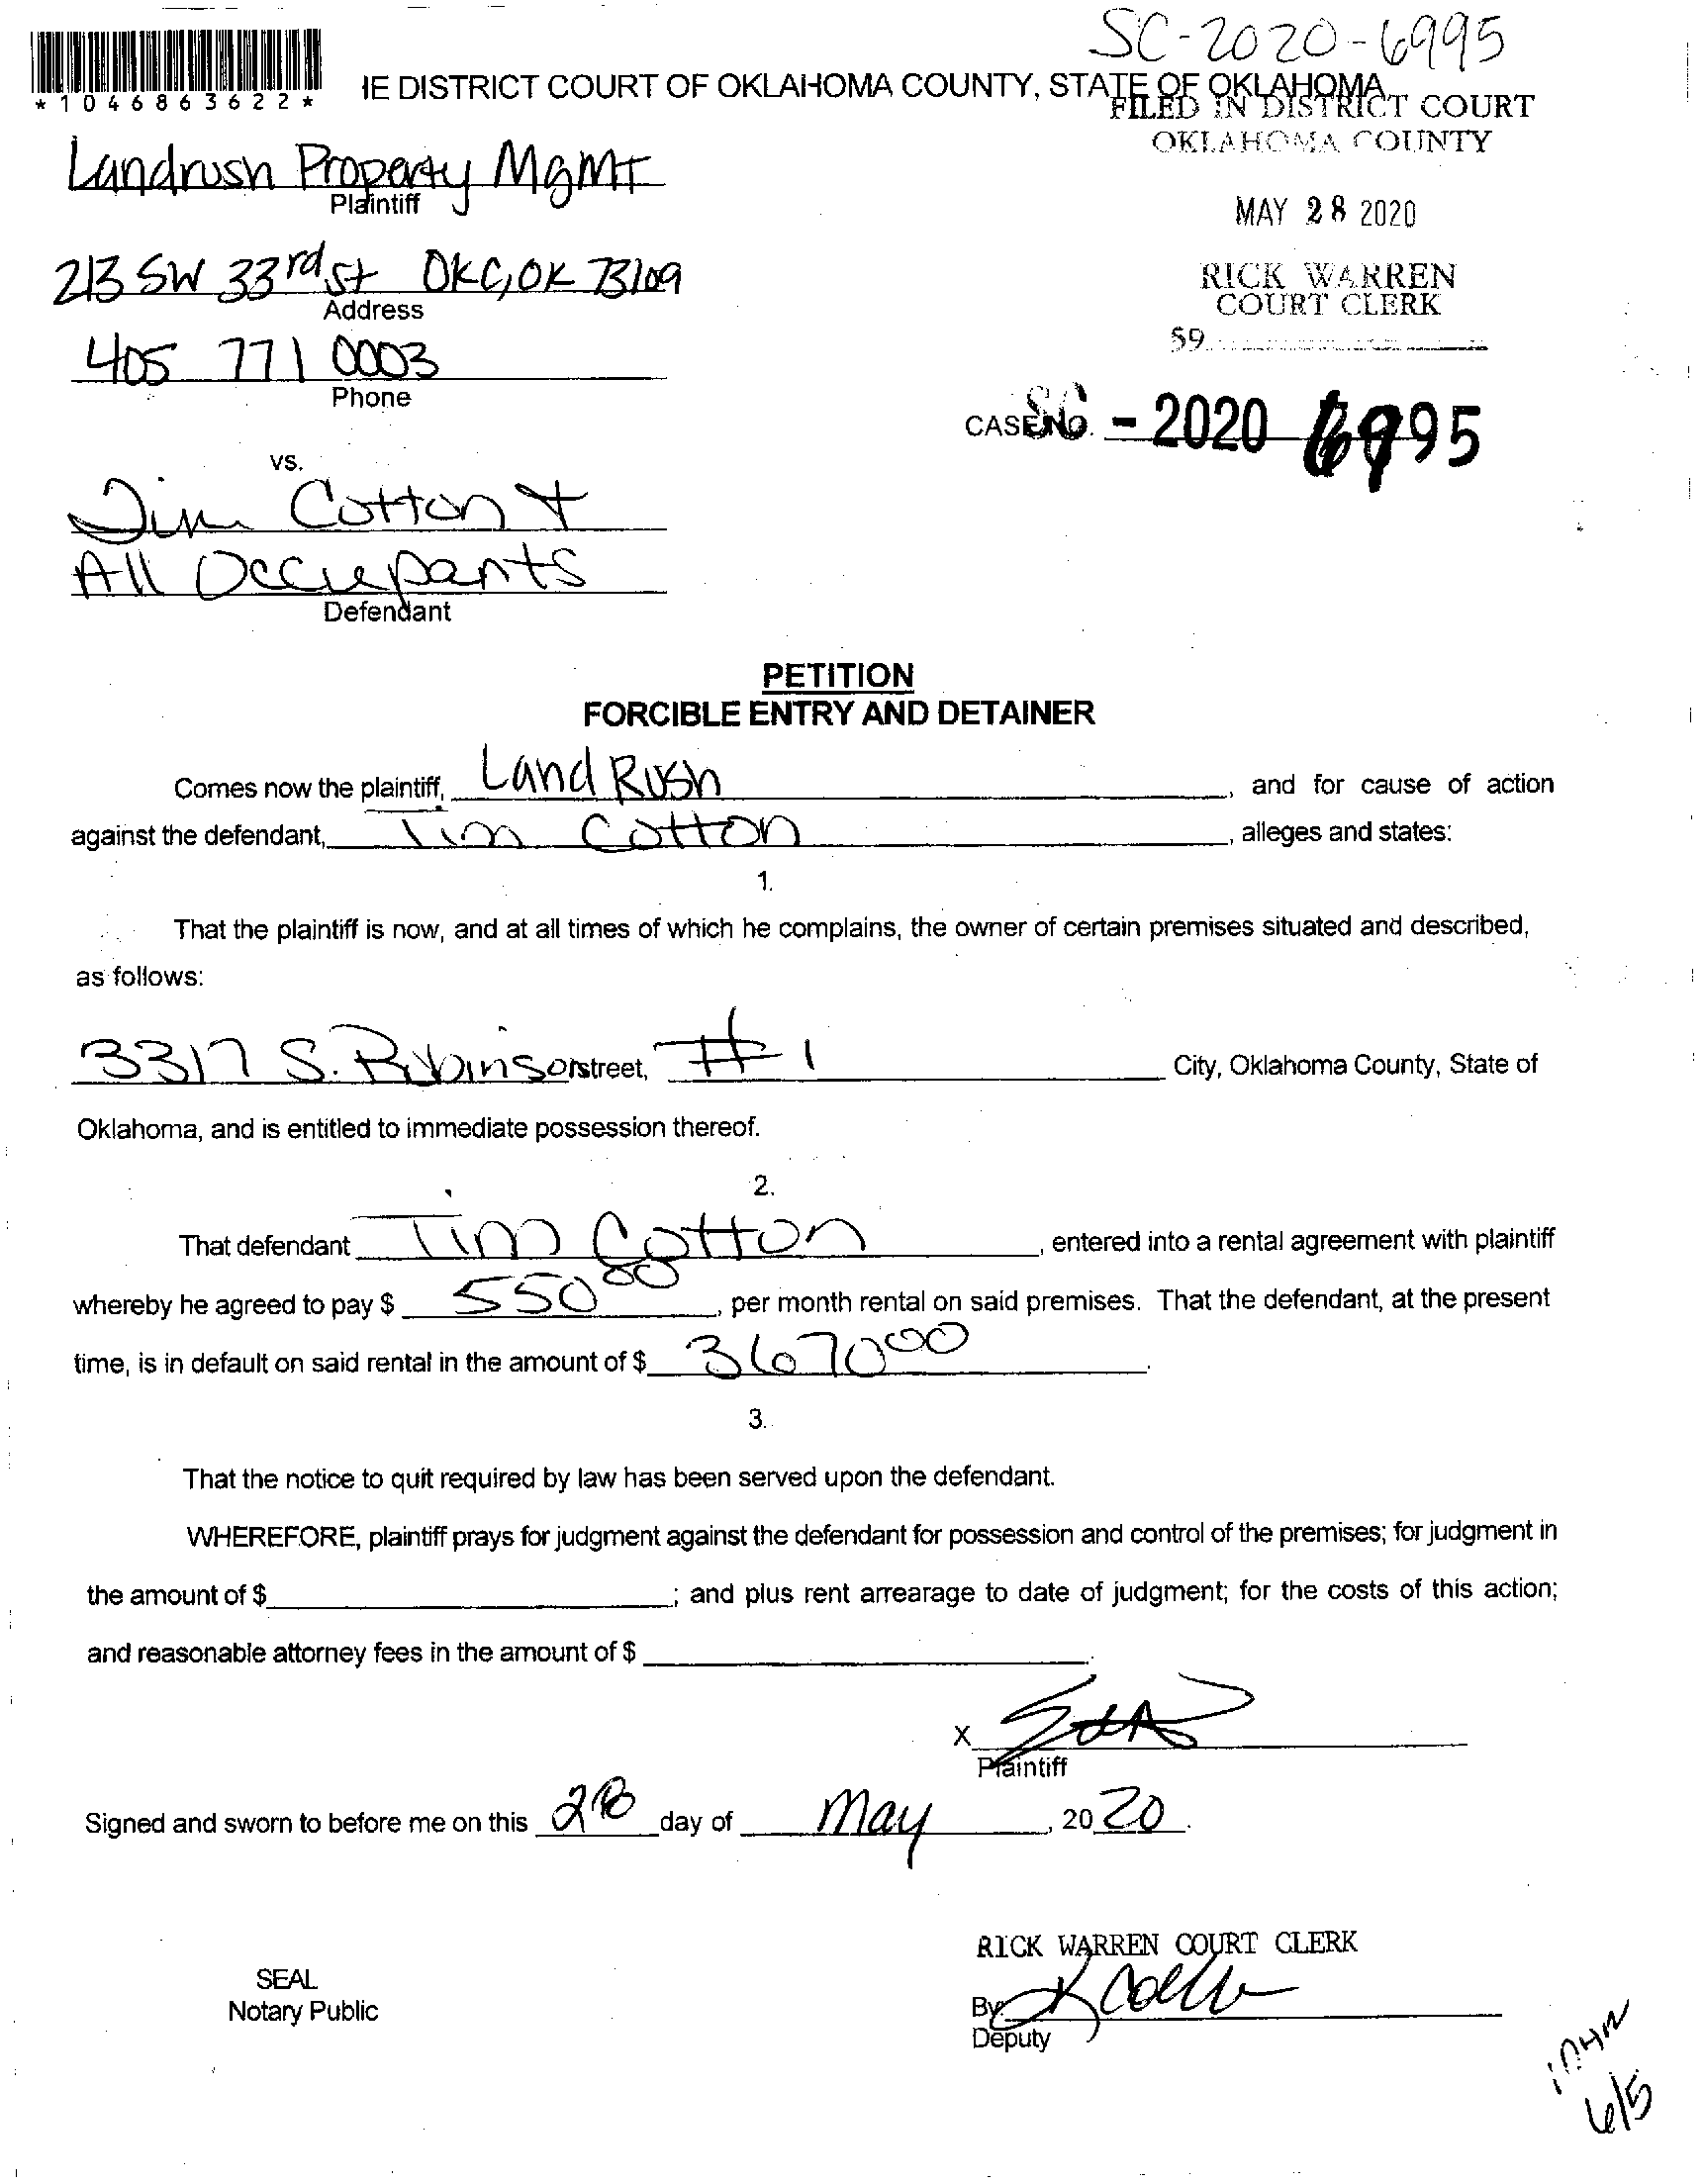 SC-2020-6995
*1046863622*
IE DISTRICT COURT OF OKLAHOMA COUNTY, STATE OF OKLAHOMA
FILED IN DISTRICT COURT
OKLAHOMA COUNTY
Landrush Property MgMT
Plaintiff
MAY 28 2020
213 SW 33rd St OKC, OK 73109
Address
RICK WARREN
COURT CLERK
59
405 771 0003
Phone
CASE NO. SC - 2020 6995
vs.
Jim Cotton +
All Occupants
Defendant
PETITION
FORCIBLE ENTRY AND DETAINER
Comes now the plaintiff, Land Rush, and for cause of action
against the defendant, Tim Cotton, alleges and states:
1.
That the plaintiff is now, and at all times of which he complains, the owner of certain premises situated and described,
as follows:
3317 S. Robinson street, #1 City, Oklahoma County, State of
Oklahoma, and is entitled to immediate possession thereof.
2.
That defendant Tim Cotton, entered into a rental agreement with plaintiff
whereby he agreed to pay $ 550 00, per month rental on said premises. That the defendant, at the present
time, is in default on said rental in the amount of $ 3670 00.
3.
That the notice to quit required by law has been served upon the defendant.
WHEREFORE, plaintiff prays for judgment against the defendant for possession and control of the premises; for judgment in
the amount of $ ; and plus rent arrearage to date of judgment; for the costs of this action;
and reasonable attorney fees in the amount of $ .
X
Plaintiff
Signed and sworn to before me on this 28 day of May, 20 20.
RICK WARREN COURT CLERK
SEAL
Notary Public
By
Deputy
6/5